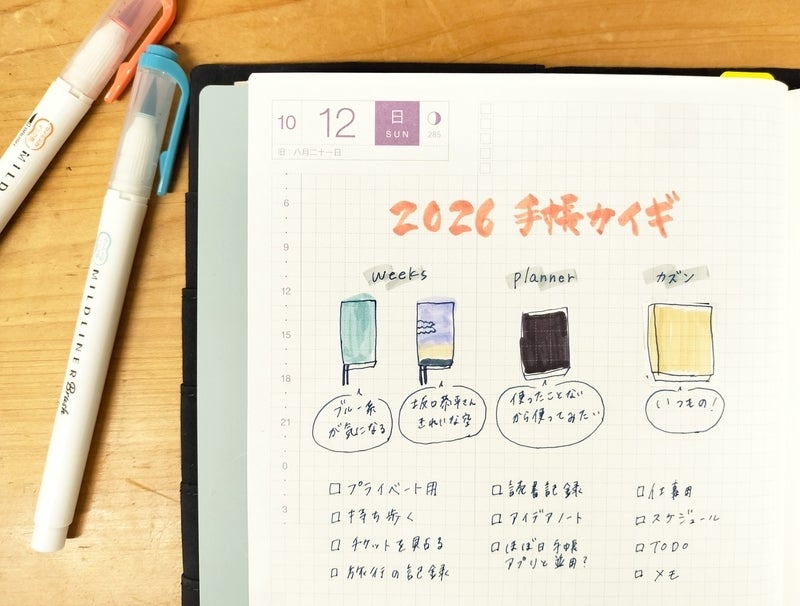 10 12 日 SUN 285
旧:八月二十一日
2026 手帳カイギ
weeks planner カズン
ブルー系
が気になる
坂口恭平さん
きれいな空
使ったことない
から使ってみたい
いつもの!
プライベート用
持ち歩く
チケットを貼る
旅行の記録
読書記録
アイデアノート
ほぼ日手帳
アプリと並用?
仕事用
スケジュール
TODO
メモ
6
9
12
15
18
21
0
3
MILD
MILDLINER Brush